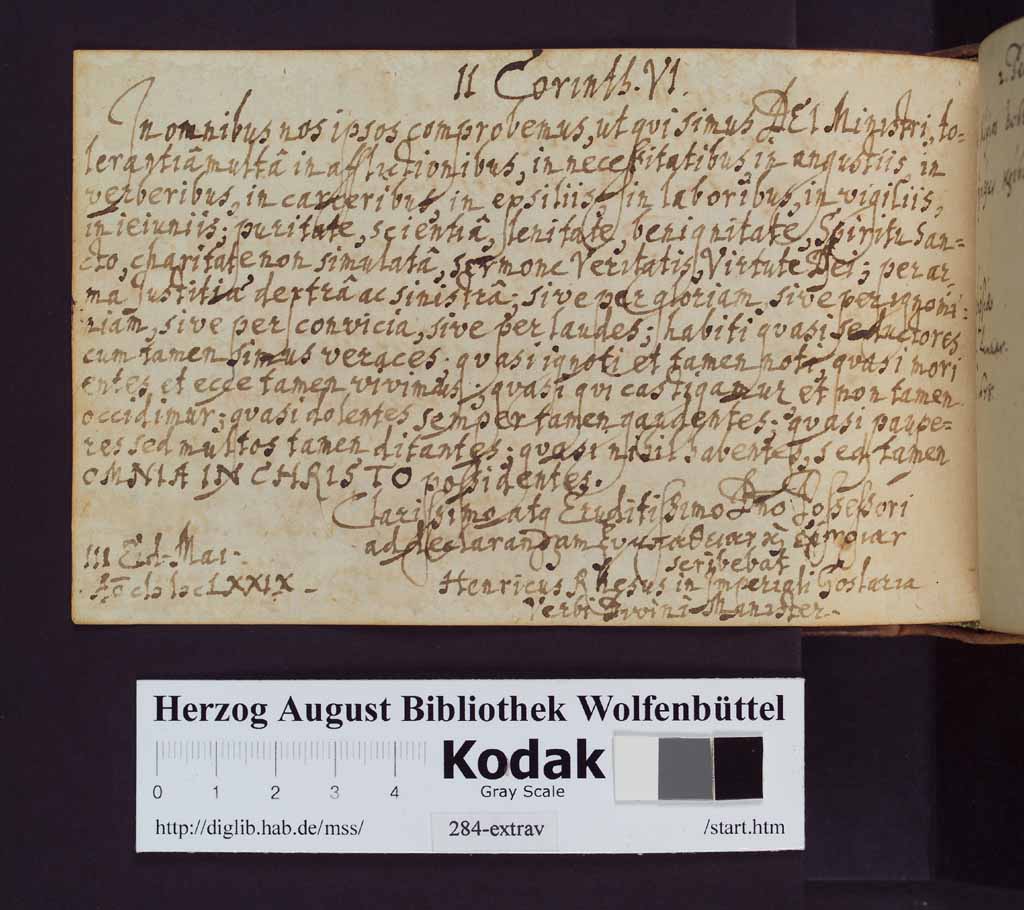 II Corinth. VI.
In omnibus nos ipsos comprobemus, ut qui simus DEI Ministri, to=
lerantiâ multâ in afflictionibus, in necessitatibus, in angustiis, in
verberibus, in carceribus, in epsiliis, in laboribus, in vigiliis,
in ieiuniis; puritate, scientiâ, lenitate, benignitate, Spiritu San=
cto, charitate non simulatâ, sermone Veritatis, Virtute Dei; per ar
ma Justitiæ dextrâ ac sinistrâ; sive per gloriam, sive per ignomi=
niam, sive per convicia, sive per laudes; habiti quasi seductores
cum tamen simus veraces; quasi ignoti et tamen noti, quasi mori
entes et ecce tamen vivimus, quasi qui castigamur et non tamen
occidimur; quasi dolentes semper tamen gaudentes; quasi paupe=
res sed multos tamen ditantes; quasi nihil habentes, sed tamen
OMNIA IN CHRISTO possidentes.
Clarissimo atq Eruditissimo Dno Possessori
ad declarandam
scribebat
III Eid. Mai.
Henricus Rhesus in Imperiali Goslaria
Aõ LXXIX
Verbi Divini Minister
Herzog August Bibliothek Wolfenbüttel
0 1 2 3 4
Kodak
Gray Scale
http://diglib.hab.de/mss/
284-extrav
/start.htm